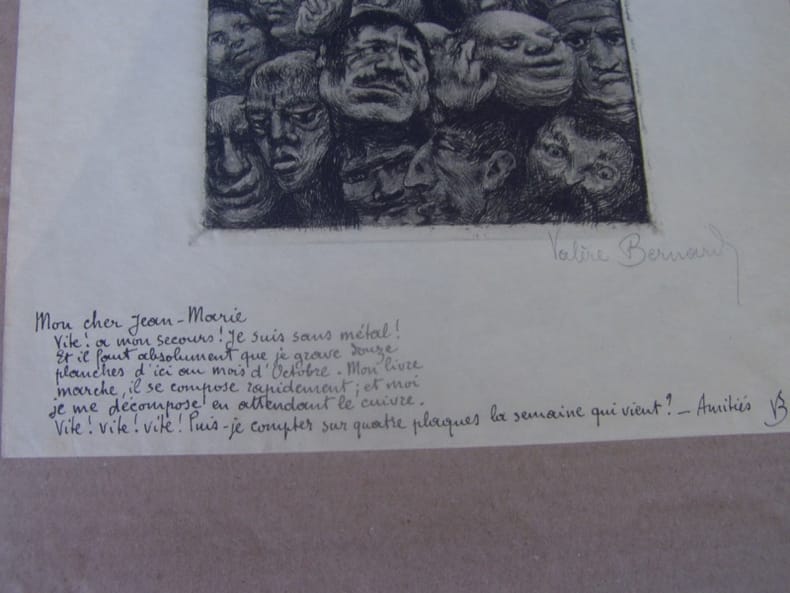 Valère Bernard
Mon cher Jean-Marie
Vite! a mon secours! Je suis sans métal!
Et il faut absolument que je grave douze
planches d'ici au mois d'Octobre - Mon livre
marche, il se compose rapidement; et moi
je me décompose en attendant le cuivre.
Vite! vite! vite! Puis-je compter sur quatre plaques la semaine qui vient? - Amitiés VB